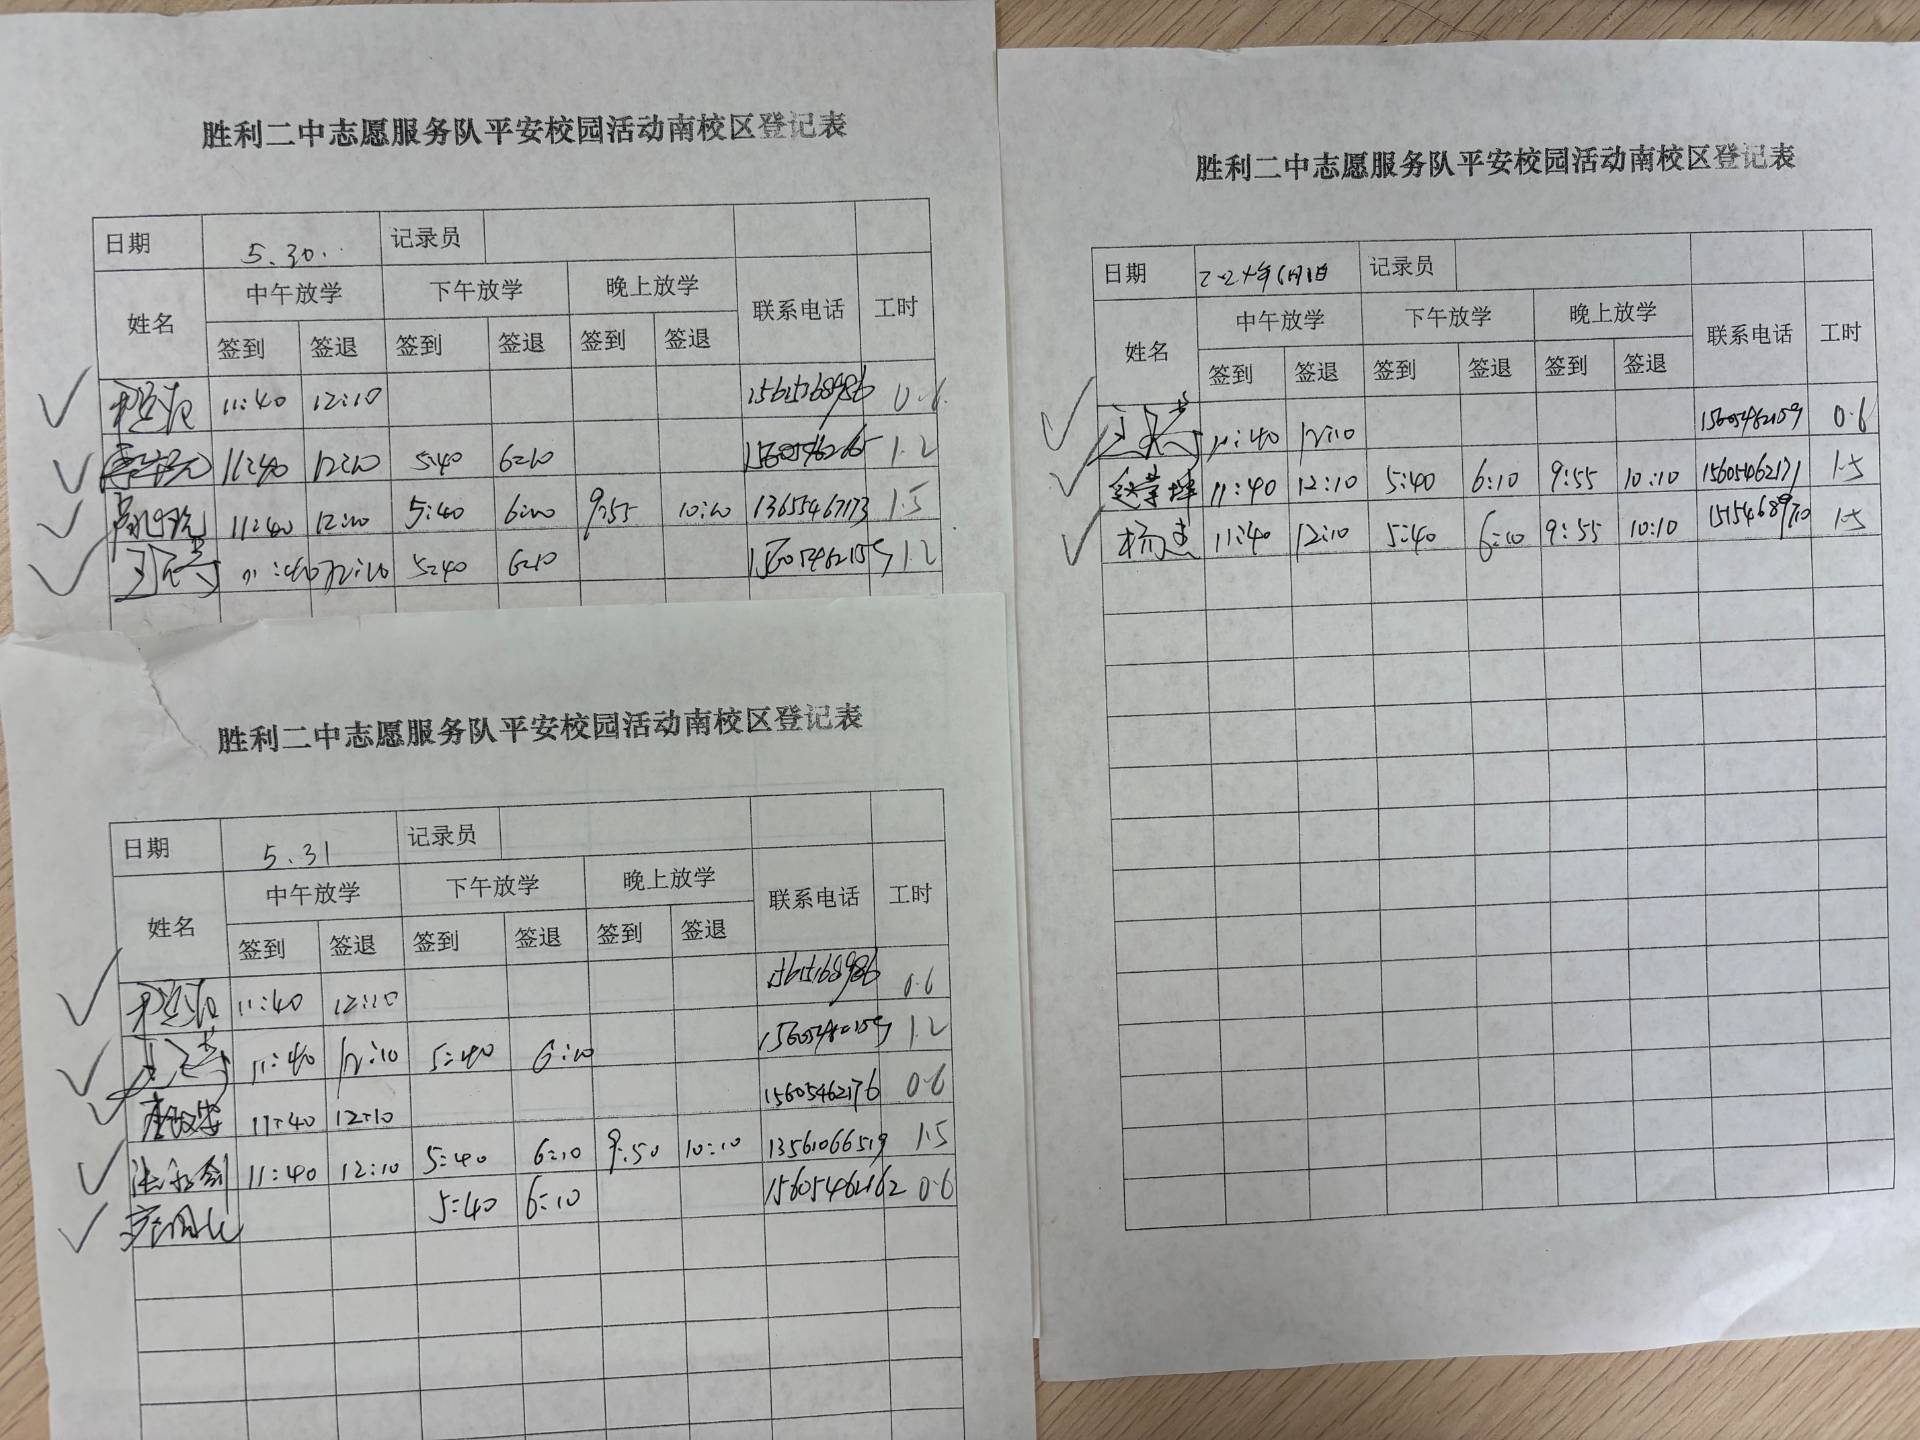 胜利二中志愿服务队平安校园活动南校区登记表
日期 5.30. 记录员
姓名 中午放学 下午放学 晚上放学 联系电话 工时
签到 签退 签到 签退 签到 签退
11:40 12:10 15615168986 0.6
11:40 12:10 5:40 6:10 1.2
11:40 12:10 5:40 6:10 9:55 10:10 13655467173 1.5
11:40 12:10 5:40 6:10 15605462159 1.2
胜利二中志愿服务队平安校园活动南校区登记表
日期 5.31 记录员
姓名 中午放学 下午放学 晚上放学 联系电话 工时
签到 签退 签到 签退 签到 签退
11:40 12:10 15615168986 0.6
11:40 12:10 5:40 6:10 1.2
11:40 12:10 15605462176 0.6
11:40 12:10 5:40 6:10 9:50 10:10 13561066519 1.5
5:40 6:10 15605462162 0.6
胜利二中志愿服务队平安校园活动南校区登记表
日期 2024年6月1日 记录员
姓名 中午放学 下午放学 晚上放学 联系电话 工时
签到 签退 签到 签退 签到 签退
11:40 12:10 15605462159 0.6
11:40 12:10 5:40 6:10 9:55 10:10 15605462171 1.5
杨 11:40 12:10 5:40 6:10 9:55 10:10 1.5